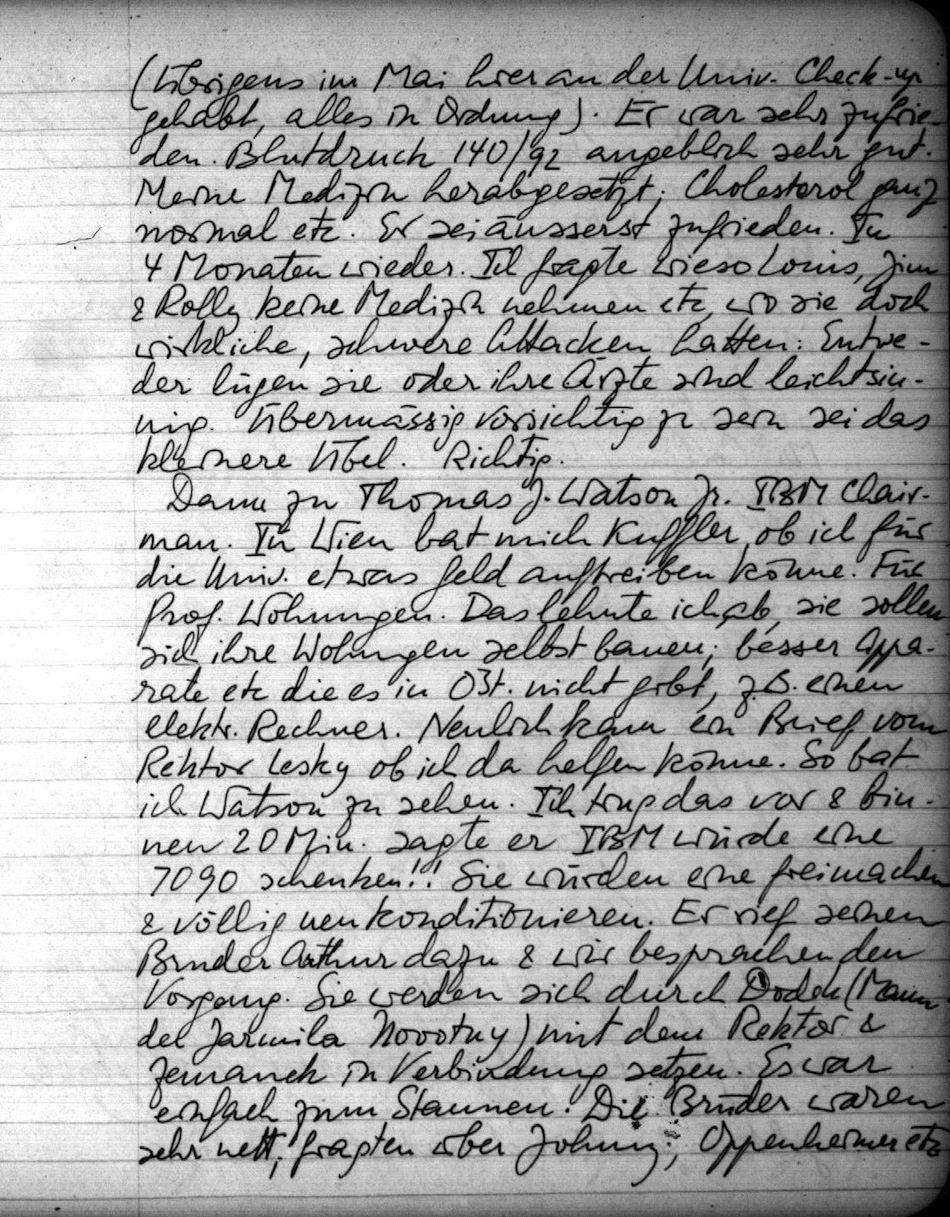 (Übrigens im Mai hier an der Univ. Check-up
gehabt, alles in Ordnung). Er war sehr zufrie-
den. Blutdruck 140/92 angeblich sehr gut.
Meine Medizin herabgesetzt; Cholesterol ganz
normal etc. Er sei äusserst zufrieden. In
4 Monaten wieder. Ich fragte wieso Louis, Jim
& Rolly keine Medizin nehmen etc, wo sie doch
wirkliche, schwere Attacken hatten: Entwe-
der lügen sie oder ihre Ärzte sind leichtsin-
nig. Übermässig vorsichtig zu sein sei das
kleinere Übel. Richtig.
Dann zu Thomas J. Watson Jr. IBM Chair-
man. In Wien bat mich Kuffler, ob ich für
die Univ. etwas Geld auftreiben könne. Für
Prof. Wohnungen. Das lehnte ich ab, sie sollen
sich ihre Wohngen selbst bauen; besser Appa-
rate etc die es in Öst. nicht gibt, z.B. einen
elektr. Rechner. Neulich kam ein Brief vom
Rektor Lesky ob ich da helfen könne. So bat
ich Watson zu sehen. Ich trug das vor & bin-
nen 20 Min. sagte er IBM würde eine
7090 schenken!! Sie würden eine freimachen
& völlig neu konditionieren. Er rief seinen
Bruder Arthur dazu & wir besprachen den
Vorgang. Sie werden sich durch (Mann
der Jarmila Novotny) mit dem Rektor &
Zemanek in Verbindung setzen. Es war
einfach zum Staunen! Die Brüder waren
sehr nett, fragten über Johnny, Oppenheimer etc